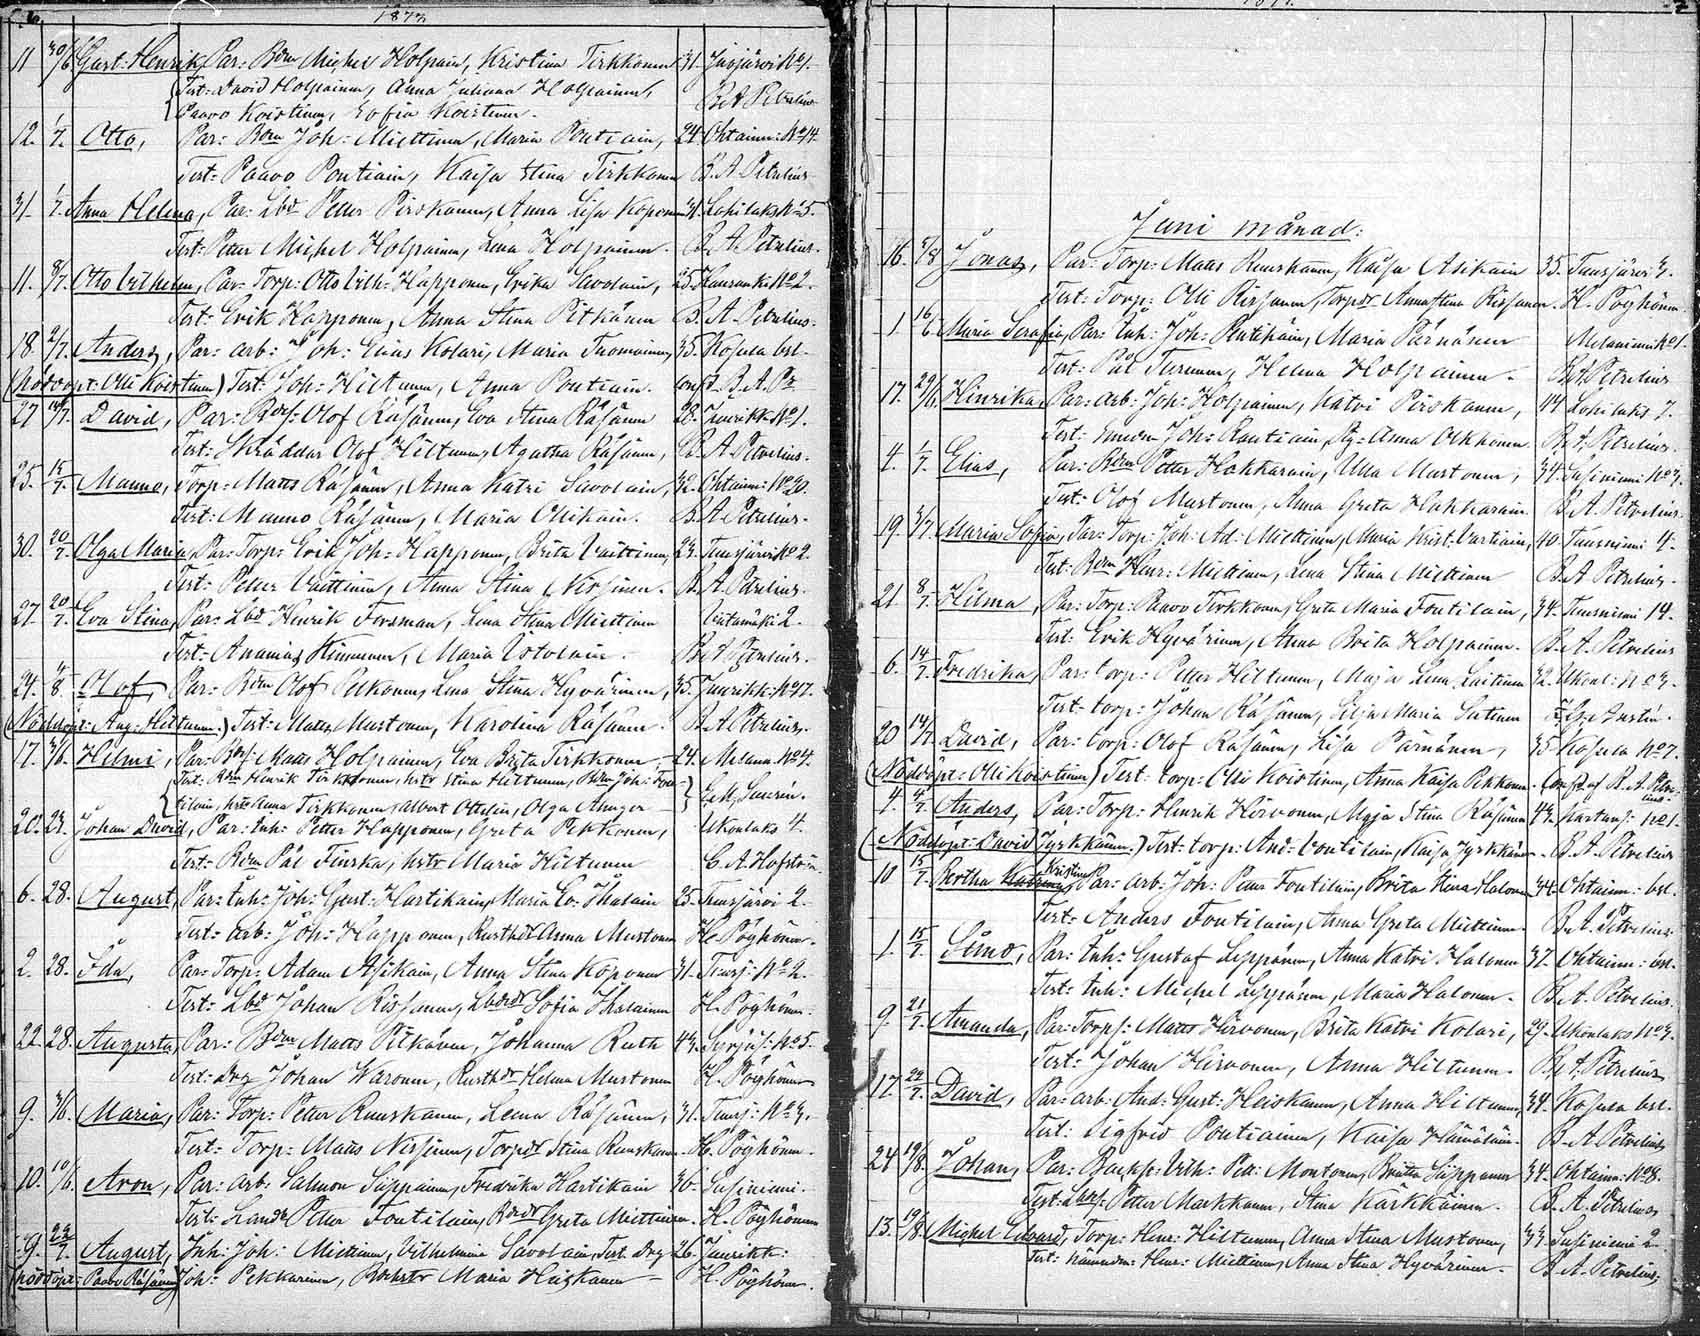 6.
1877.
11 30/6 Gust: Henrik, Par: Bdn Michel Holpain, Kristina Tirkkonen 31. Juojärvi No 1.
Test: David Holpainen, Anna Juliana Holpainen, B. A. Petrelius
Paavo Koistinen, Sofia Koistinen.
12. 1/7. Otto, Par: Bdn Joh: Miettinen, Maria Pontiain, 24 Ohtainn: No 14.
Test: Paavo Pontiain, Kaisa Stina Tirkkonen B. A. Petrelius
31. 1/7. Anna Helena, Par: Lbd Petter Pirskanen, Anna Lisa Koponen 31. Lapilaks No 5.
Test: Petter Michel Holpainen, Lena Holpainen. B. A. Petrelius.
11. 8/7. Otto Vilhelm, Par: Torp: Otto Vilh: Happonen, Erika Savolain, 25. No 2.
Test: Erik Happonen, Anna Stina Pitkänen B. A. Petrelius.
18 2/7. Anders, Par: arb: Joh: Elias Kolari, Maria Tuomainen, 35. Kosula bst.
(Nöddöpt: Olli Koistinen) Test: Joh: Hiltunen, Anna Pontiain. conf. B. A. Ps
27 David, Par: Olof Räsänen, Eva Stina Räsänen 28. Juurikk No 1.
Test: Skräddar Olof Hiltunen, Agatha Räsänen, B. A. Petrelius.
25. 15/7. Manno, Torp: Matts Räsänen, Anna Katri Savolain, 32. Ohtainn: No 20.
Test: Manno Räsänen, Maria Ollikain. B. A. Petrelius.
30. 20/7. Olga Maria, Par: Torp: Erik Joh: Happonen, Brita Vaittinen, 23. Tuusjärvi No 2.
Test: Petter Vaittinen, Anna Stina Nissinen. B. A. Petrelius.
27 20/7. Eva Stina, Par: Lbd Henrik Forsman, Lena Stina Miettinen 2.
Test: Ananias Kinnunen, Maria B. A. Petrelius.
24. 4/8. Olof, Par: Bdn Olof Pekkonen, Lena Stina Hyvärinen, 35. Juurikk: No 17.
(Nöddöpt: Aug: Hiltunen.) Test: Matts Mustonen, Karolina Räsänen. B. A. Petrelius.
17. 3/6. Helmi, Par: Matts Holpainen, Eva Brita Tirkkonen, 24. Melann. No 4.
Test: Bdn Henrik Tirkkonen, hstr Stina Hiltunen, Bdn Joh: Fon-
tilain, Anna Tirkkonen, Albert Olga E. M.
20. 23. Johan David, Par: Inh: Petter Happonen, Greta Pekkonen, Ukonlaks 4.
Test: Bdn Pål Finska, hstr Maria Hiltunen C. A. Hofström
6. 28. August, Par: Inh: Joh: Gust: Hartikain, Maria Ev: Ihalain 25. Tuusjärvi 2.
Test: arb: Joh: Happonen, Anna Mustonen H. Pöyhönen.
2. 28. Ida, Par: Torp: Adam Asikain, Anna Stina Koponen 31. Tuusj: No 2.
Test: Lbd Johan Rissanen, Sofia Ihalainen H. Pöyhönen.
22. 28. Augusta, Par: Bdn Matts Pitkänen, Johanna Ruth 43. No 5.
Test: Drg Johan Waronen, Helena Mustonen H. Pöyhönen
9. 3/6. Maria, Par: Torp: Petter Ruuskanen, Leena Räsänen, 31. Tuusj: No 3.
Test: Torp: Matts Nissinen, Stina Ruuskanen. H. Pöyhönen.
10. 10/6. Aron, Par: arb: Salmon Siippainen, Fredrika Hartikain 36. Susiniemi.
Test: Petter Fontilain, Greta Miettinen. H. Pöyhönen
9. 22/7. August, Inh: Joh: Miettinen, Vilhelmina Savolain, Test: Drg 26. Juurikk:
(nöddöpt: Paavo Räsänen) Joh: Pekkarinen, Maria Heiskanen — H. Pöyhönen.
Juni månad:
16. 5/8 Jonas, Par: Torp: Matts Ruuskanen, Kaisa Asikain 35. Tuusjärvi 3.
Test: Torp: Olli Rissanen, Anna Stina Rissanen. H. Pöyhönen
1. 16/6. Maria Serafia, Par: Inh: Joh: Maria Pärnänen Melaniemi No 1.
Test: Pål Turunen, Helena Holpainen. B. A. Petrelius
17. 29/6. Hinrika, Par: arb: Joh: Holpainen, Katri Pirskanen, 44 Lapilaks 7.
Test: Joh: Rautiain, Anna Olkkonen B. A. Petrelius.
4. 1/7. Elias, Par: Bdn Petter Hakkarain, Ulla Mustonen, 34. Susiniemi No 3.
Test: Olof Mustonen, Anna Greta Hakkarain. B. A. Petrelius.
19. 3/7. Maria Sofia, Par: Torp: Joh: Ad: Miettinen, Maria Krist: Vartiain, 40. Tuusniemi 4.
Test: Bdn Henr: Miettinen, Lena Stina Miettinen B. A. Petrelius.
21 8/7. Hilma, Par: Torp: Paavo Tirkkonen, Greta Maria Fontilain, 34. Tuusniemi 14.
Test: Erik Hyvärinen, Anna Brita Holpainen. B. A. Petrelius
6. 14/7. Fredrika, Par: torp: Petter Hiltunen, Maja Lena Laitinen 32. Ukonl: No 3.
Test: torp: Johan Räsänen, Silja Maria
20 14/7. David, Par: torp: Olof Räsänen, Lisa Pärnänen, 35 Kosula No 7.
(Nöddöpt: Olli Koistinen) Test: torp: Olli Koistinen, Anna Kaisa Pekkonen. Conf: af B. A. Petre-
lius
4. 4/7. Anders, Par: Torp: Henrik Hirvonen, Maja Stina Räsänen 44. No 1.
(Nöddöpt: David Jyrkkänen.) Test: torp: And: Voutilain, Kaisa Jyrkkänen. B. A. Petrelius
10 15/7. Bertha Kristina, Par: arb: Joh: Petter Fontilain, Brita Stina Halonen 34. Ohtainn: bst.
Test: Anders Fontilain, Anna Greta Miettinen. B. A. Petrelius.
1. 15/7. Stina, Par: Inh: Gustaf Lippönen, Anna Katri Halonen 37. Ohtainn: bst.
Test: Inh: Michel Lippönen, Maria Halonen. B. A. Petrelius.
9. 21/7. Amanda, Par: Torps: Matts Hirvonen, Brita Katri Kolari, 29. Ukonlaks No 3.
Test: Johan Hirvonen, Anna Hiltunen. B. A. Petrelius
17 22/7. David, Par: arb: And: Gust: Heiskanen, Anna Hiltunen, 34. Kosula bst.
Test: Sigfrid Pontiainen, Kaisa Hämäläin. B. A. Petrelius
24 19/8. Johan, Par: Vilh: Pet: Montonen, Siipponen 34. Ohtainn: No 8.
Test: Petter Markkanen, Stina Kärkkäinen. B. A. Petrelius
13. 19/8. Michel Edvard, Torp: Henr: Hiltunen, Anna Stina Mustonen, 33 Susiniemi 2
Test: nämndm: Henr: Miettinen, Anna Stina Hyvärinen. B. A. Petrelius.